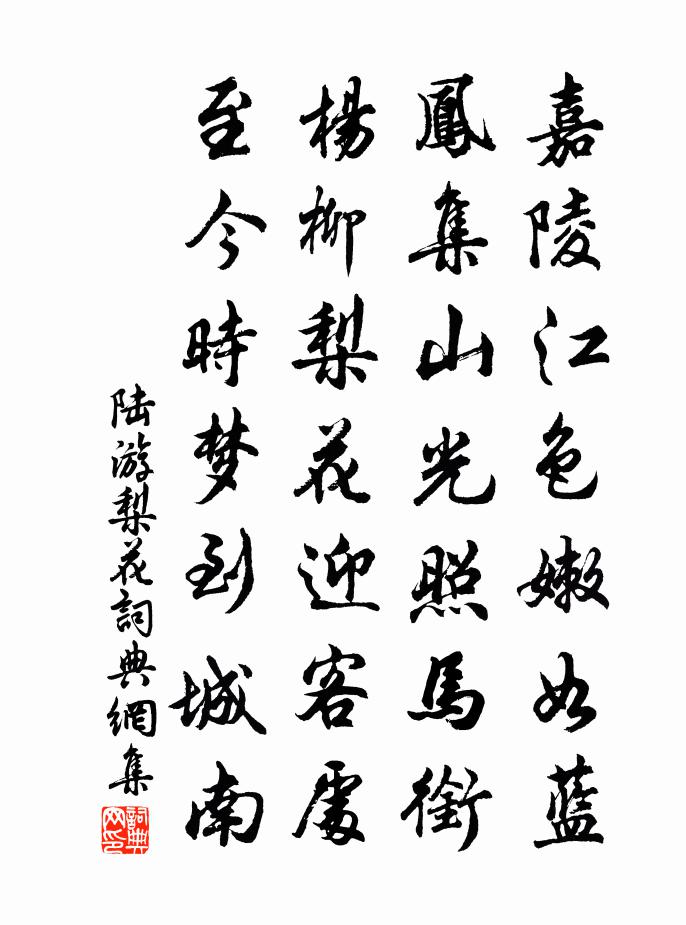 嘉陵江色嫩如藍
鳳集山光照馬銜
楊柳梨花迎客處
至今時梦到城南
陆游梨花詞典網集
詞典网印